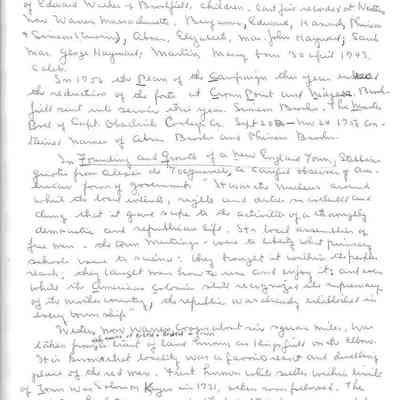 of Edward Weeks of Brookfield, children. last five recorded at Western
now Warren Massachusetts. Benjamin, Edward, Hannah, Phinias
& Simeon (twins), Abner, Elizabeth, mar. John Hayward; Sarah
mar. George Hayward; Martin, Mary born 30 april 1743.
Caleb.
In 1756 the Plan of the Campaign this year
the reduction of the forts at Crown Point and Niagara. Brook-
field sent into service this year. Simeon Brooks. The Muster
Roll of Capt. Obadiah Cooley's Co. Sept - Nov 24 1756 con-
tained names of Abner Brooks and Phineas Brooks.
In Founding and Growth of a New England Town,
quotes from Alexis de Tocqueville, a careful observer of Am-
erican form of government. "It was the nucleus around
which the local interests, rights and duties collected and
clung that it gave scope to the activities of a thoroughly
democratic and republican life. The local assemblies of
free men - the town meetings - were to liberty what primary
schools were to science: they brought it within the peoples
reach; they taught men how to use and enjoy it; and even
while the Americas Colonies still recognized the supremacy
of its mother country, the republic was already established in
every township."
Western, now Warren, Comps about six square miles, was
taken from a tract of land known as Kingsfield on the Elbow.
It is known that locality was a favorite resort and dwelling
place of the red man. First known white settler within limits
of Town was Solomon Keyes in 1721, others soon followed. The